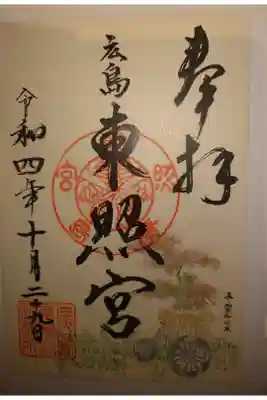 奉拝
広島
東照宮
令和四年十月二十九日